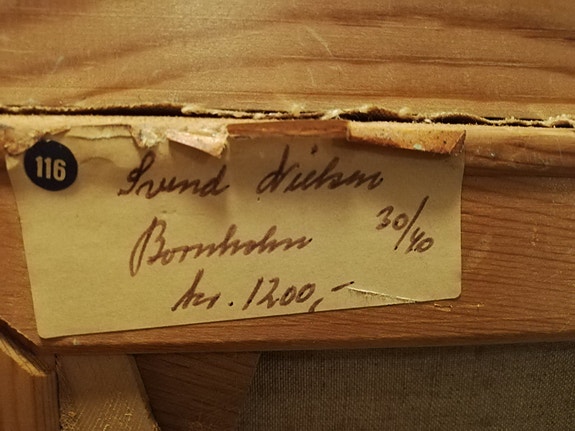 116
Svend Nielsen
Bornholm 30/40
kr. 1200,-